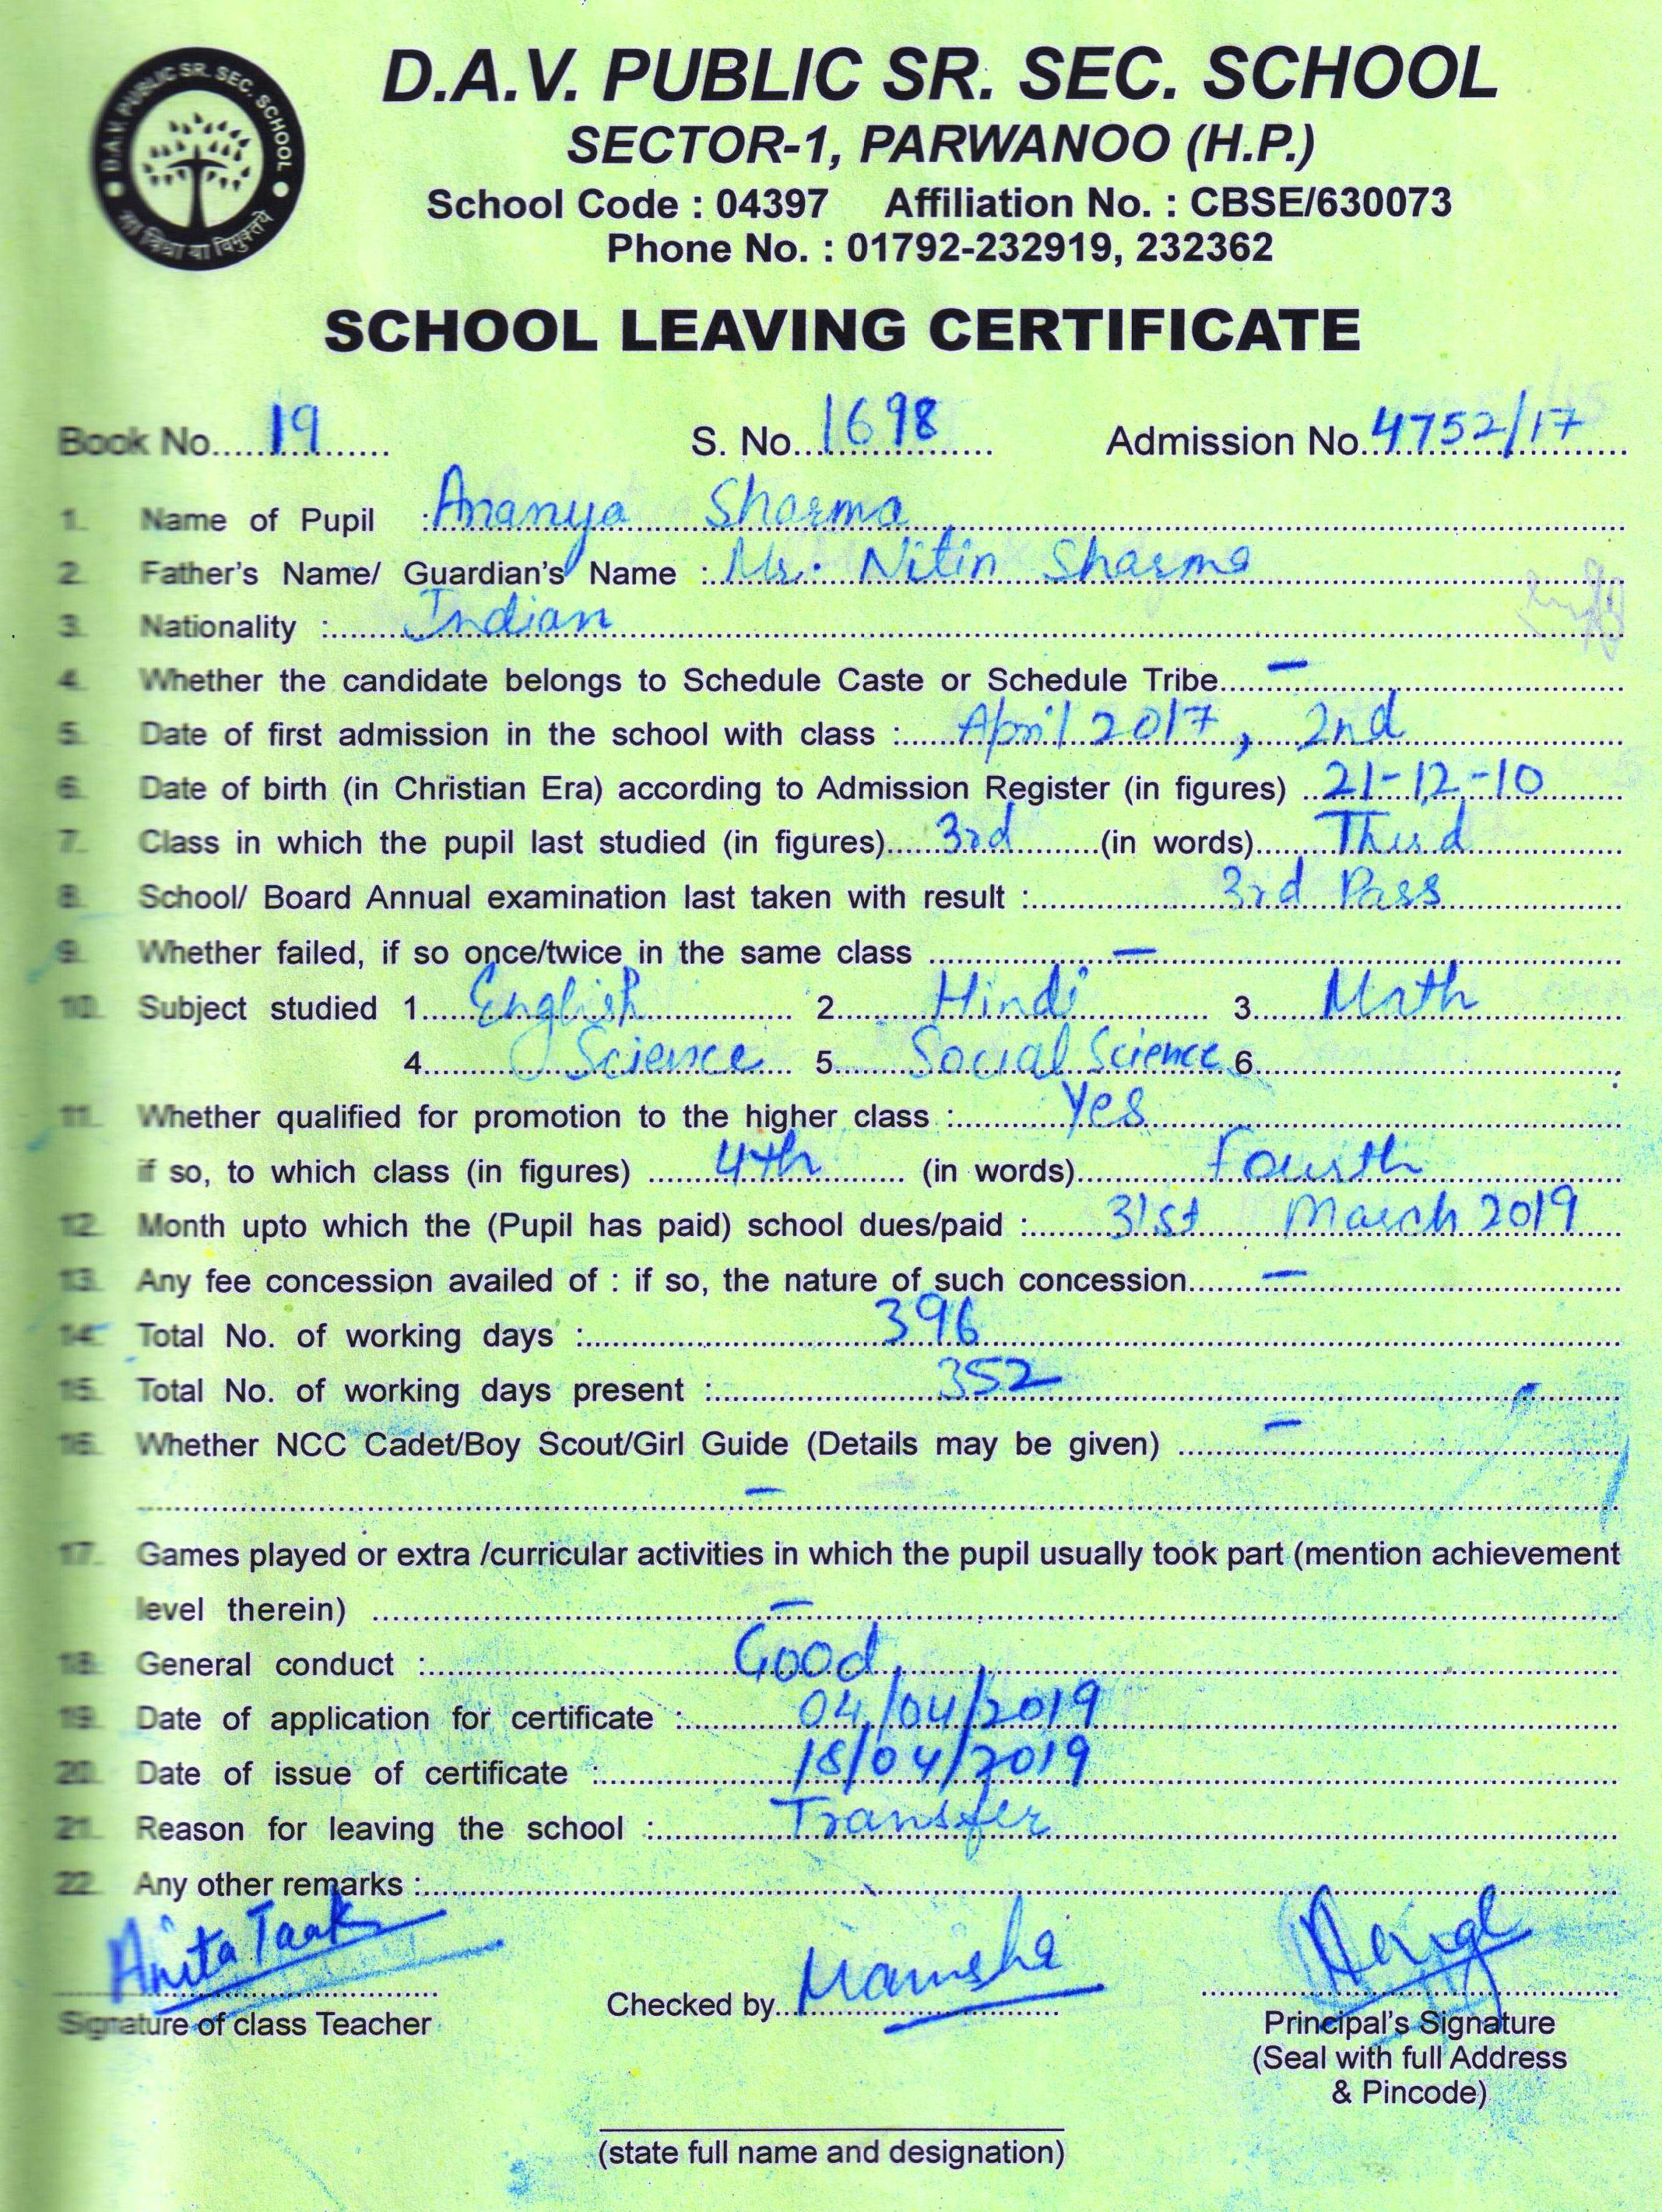 D.A.V. PUBLIC SR. SEC. SCHOOL
D.A.V. PUBLIC SR. SEC. SCHOOL
SECTOR-1, PARWANOO (H.P.)
School Code : 04397 Affiliation No. : CBSE/630073
Phone No. : 01792-232919, 232362
SCHOOL LEAVING CERTIFICATE
Book No. 19 S. No. 1698 Admission No. 4752/17
1. Name of Pupil : Ananya Sharma
2. Father's Name/ Guardian's Name : Mr. Nitin Sharma
3. Nationality : Indian
4. Whether the candidate belongs to Schedule Caste or Schedule Tribe –
5. Date of first admission in the school with class : April 2017, 2nd
6. Date of birth (in Christian Era) according to Admission Register (in figures) 21-12-10
7. Class in which the pupil last studied (in figures) 3rd (in words) Third
8. School/ Board Annual examination last taken with result : 3rd Pass
9. Whether failed, if so once/twice in the same class –
10. Subject studied 1. English 2. Hindi 3. Math
4. Science 5. Social Science 6.
11. Whether qualified for promotion to the higher class : Yes
if so, to which class (in figures) 4th (in words) Fourth
12. Month upto which the (Pupil has paid) school dues/paid : 31st March 2019
13. Any fee concession availed of : if so, the nature of such concession –
14. Total No. of working days : 396
15. Total No. of working days present : 352
16. Whether NCC Cadet/Boy Scout/Girl Guide (Details may be given) –
–
17. Games played or extra /curricular activities in which the pupil usually took part (mention achievement
level therein) –
18. General conduct : Good
19. Date of application for certificate : 04/04/2019
20. Date of issue of certificate : 18/04/2019
21. Reason for leaving the school : Transfer
22. Any other remarks :
Anita Taak
Signature of class Teacher
Checked by Manisha
Principal's Signature
(Seal with full Address
& Pincode)
(state full name and designation)